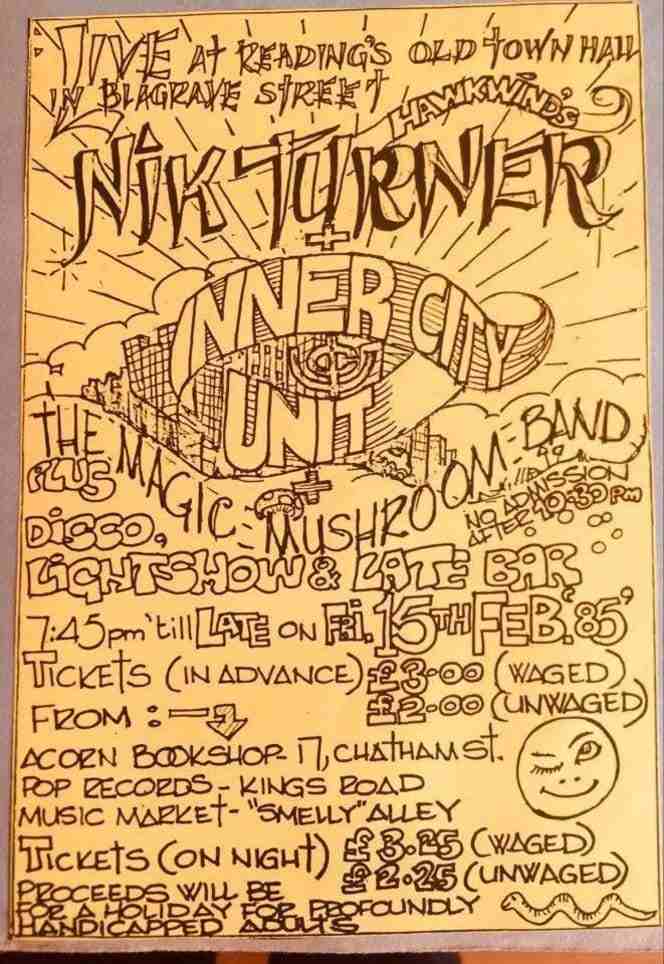 LIVE AT READING'S OLD TOWN HALL
IN BLAGRAVE STREET
HAWKWIND'S
NIK TURNER
+
INNER CITY
UNIT
+
THE MAGIC MUSHROOM BAND
PLUS
DISCO,
NO ADMISSION
AFTER 10:30 PM
LIGHTSHOW & LATE BAR
7:45pm 'till LATE ON FRI. 15TH FEB. '85'
TICKETS (IN ADVANCE) £3·00 (WAGED)
£2·00 (UNWAGED)
FROM :-
ACORN BOOKSHOP - 17, CHATHAM ST.
POP RECORDS - KINGS ROAD
MUSIC MARKET - "SMELLY" ALLEY
TICKETS (ON NIGHT) £3·25 (WAGED)
£2·25 (UNWAGED)
PROCEEDS WILL BE
FOR A HOLIDAY FOR PROFOUNDLY
HANDICAPPED ADULTS